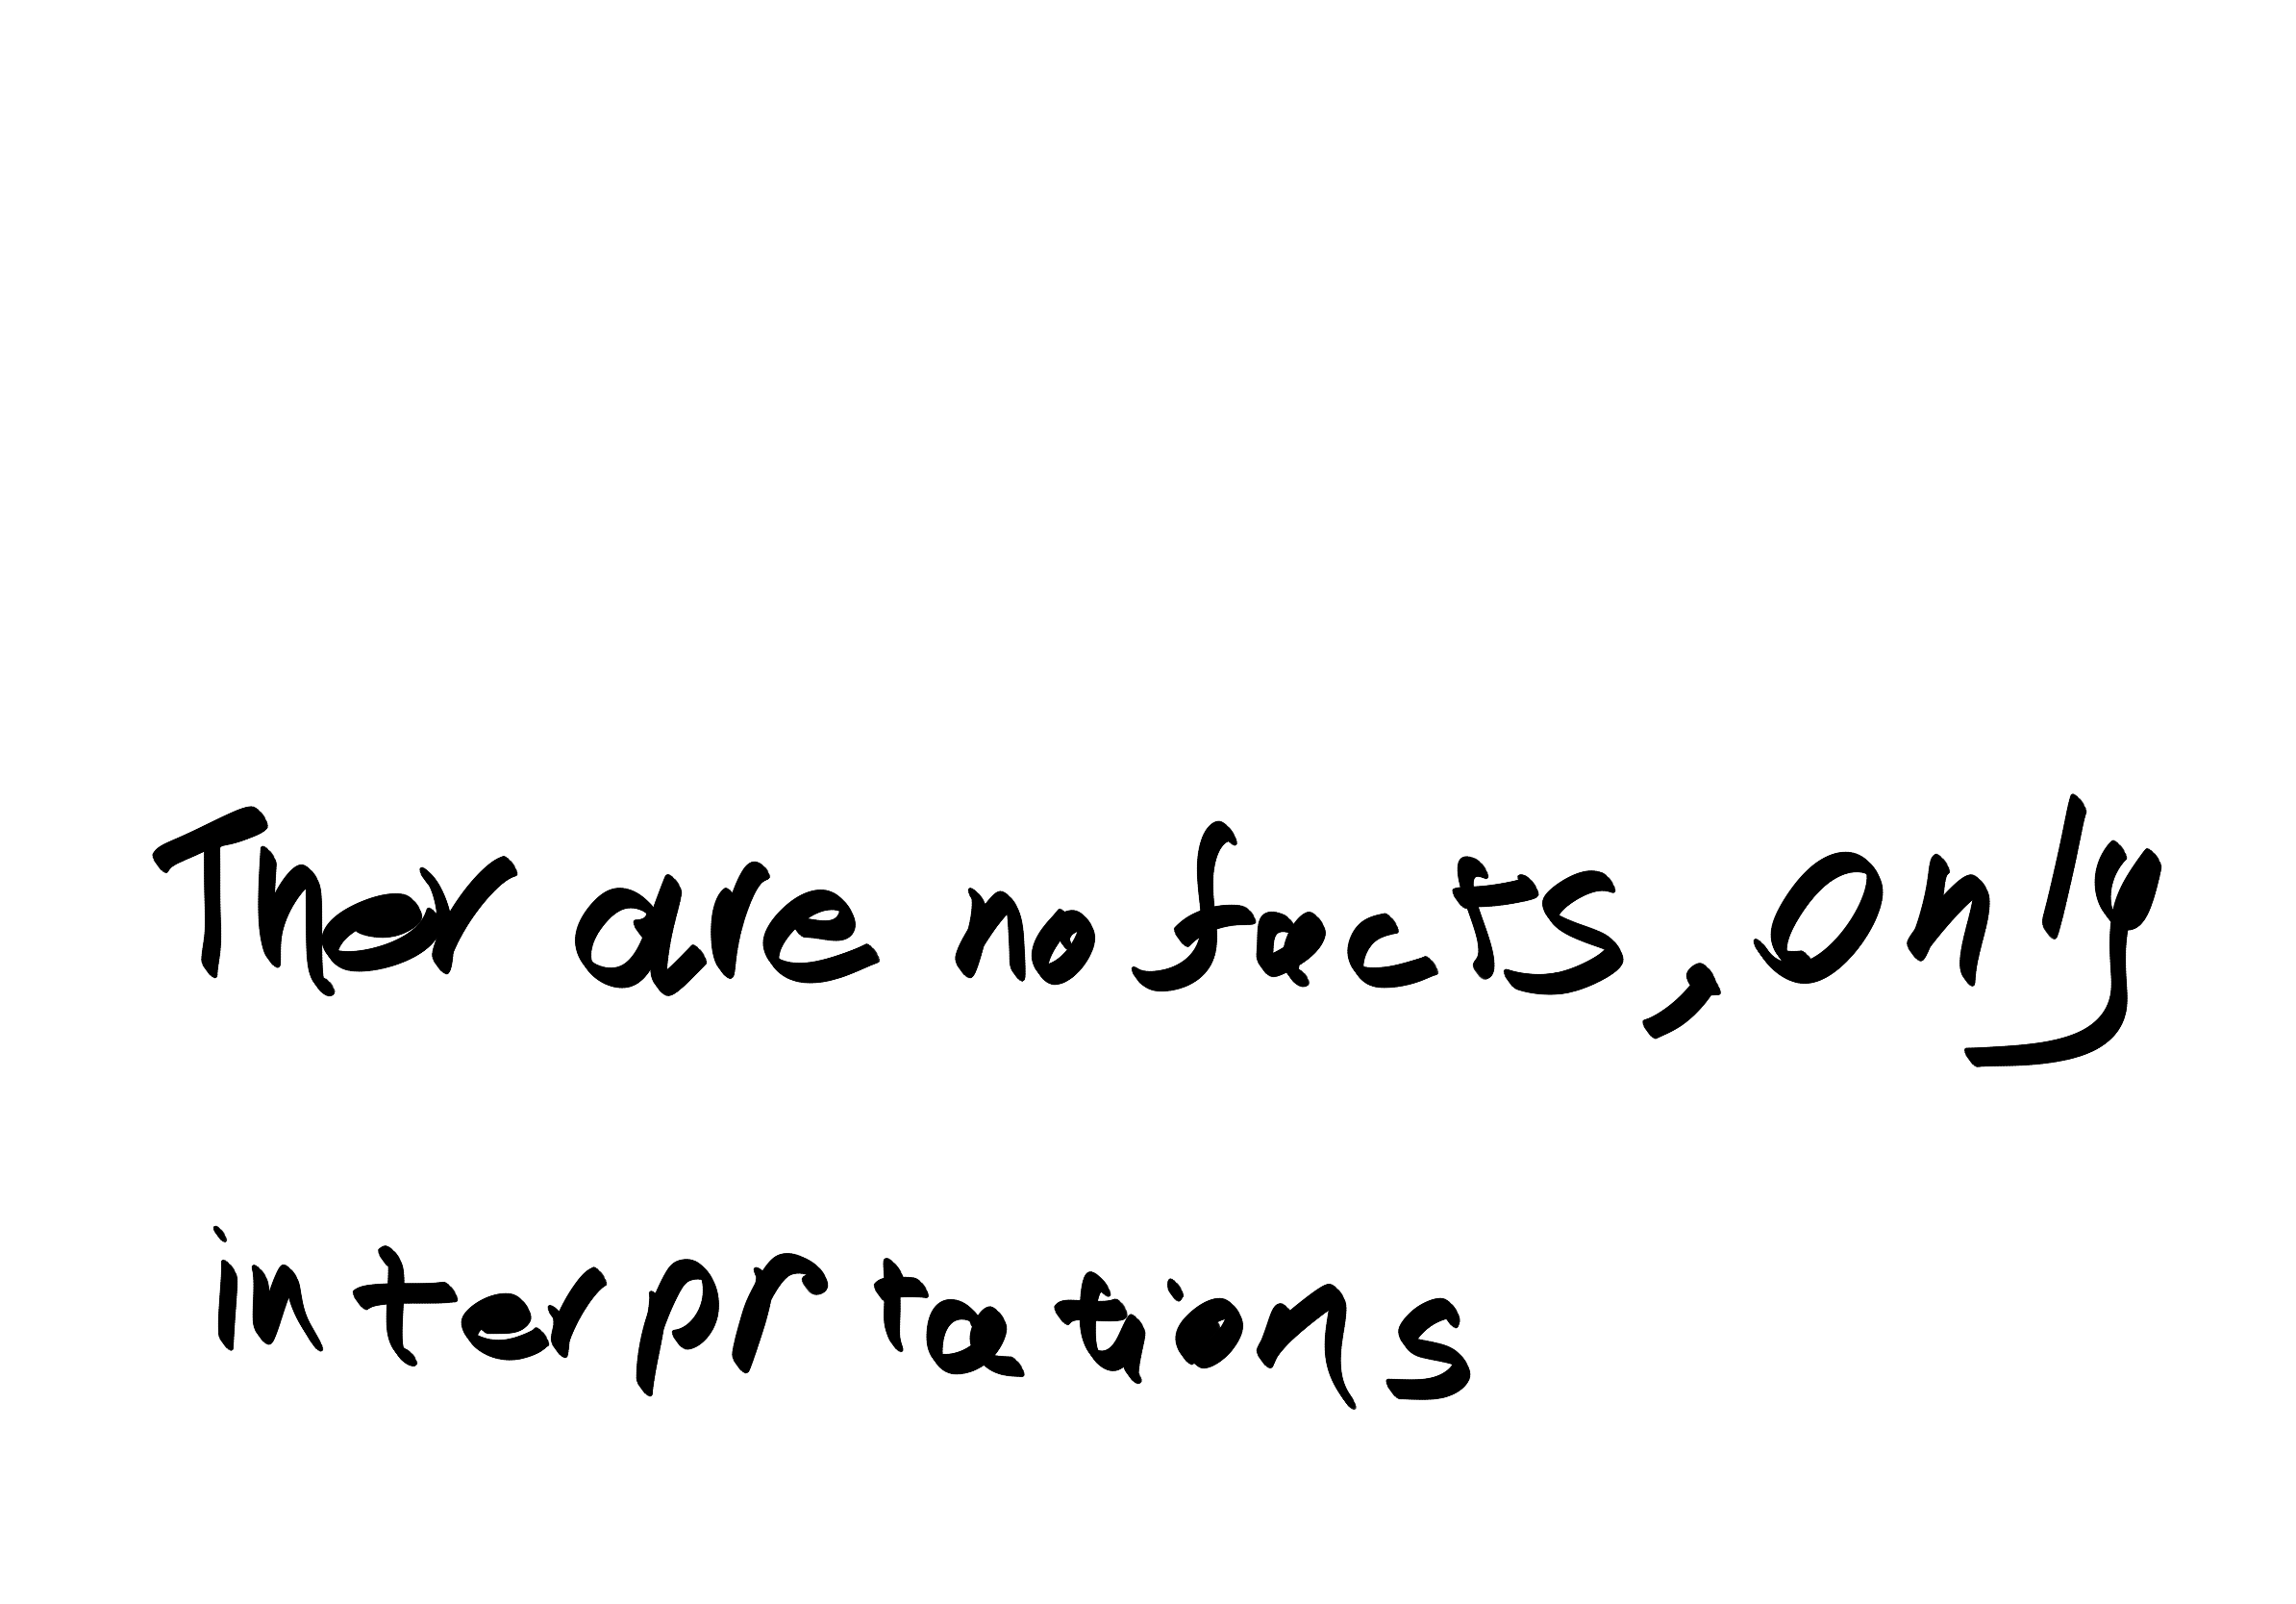 Ther are no facts, only
interprtations